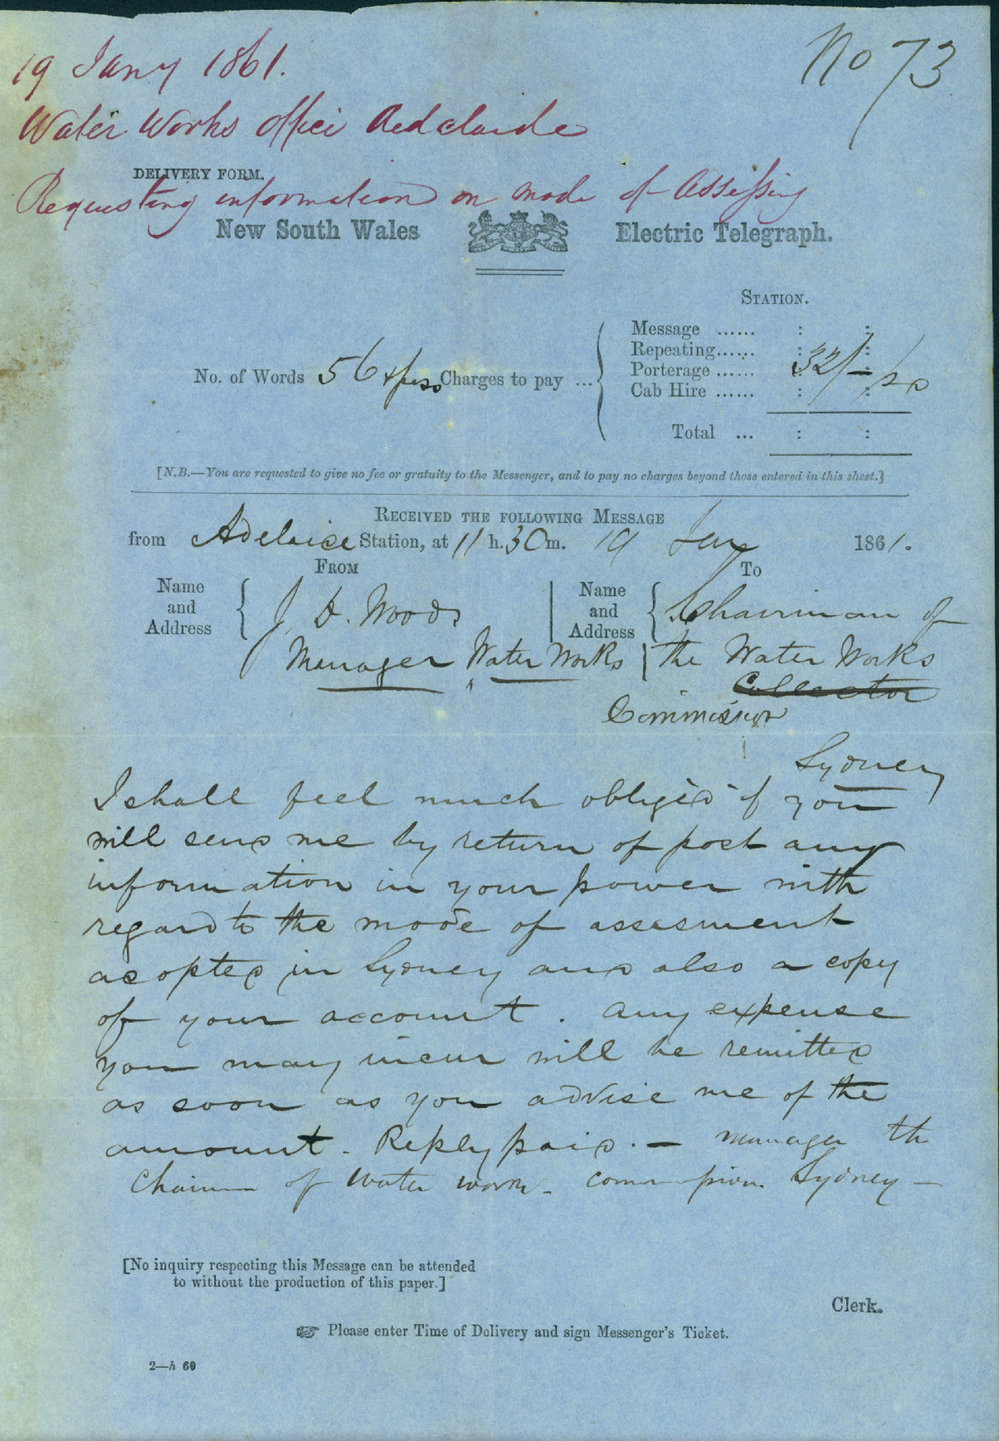 No 73
19 Jany 1861.
Water Works Office Adelaide
DELIVERY FORM.
Requesting information on mode of Assessing
New South Wales Electric Telegraph.
STATION.
No. of Words 56 Charges to pay ...
Message ...... : :
Repeating...... : :
Porterage ...... 32/-
Cab Hire ...... : :
Total ... : :
[N.B.—You are requested to give no fee or gratuity to the Messenger, and to pay no charges beyond those entered in this sheet.]
RECEIVED THE FOLLOWING MESSAGE
from Adelaide Station, at 11 h. 30 m. 19 Jany 1861.
FROM TO
Name and Address { J. D. Woods
Manager Water Works
Name and Address { Chairman of
the Water Works
Collector
Commission
Sydney
I shall feel much obliged if you
will send me by return of post any
information in your power with
regard to the mode of assesment
adopted in Sydney and also a copy
of your account. Any expense
you may incur will be remitted
as soon as you advise me of the
amount. Reply paid. — Manager th
Chairman of Water work Sydney —
[No inquiry respecting this Message can be attended
to without the production of this paper.]
Clerk.
☞ Please enter Time of Delivery and sign Messenger's Ticket.
2—h 60